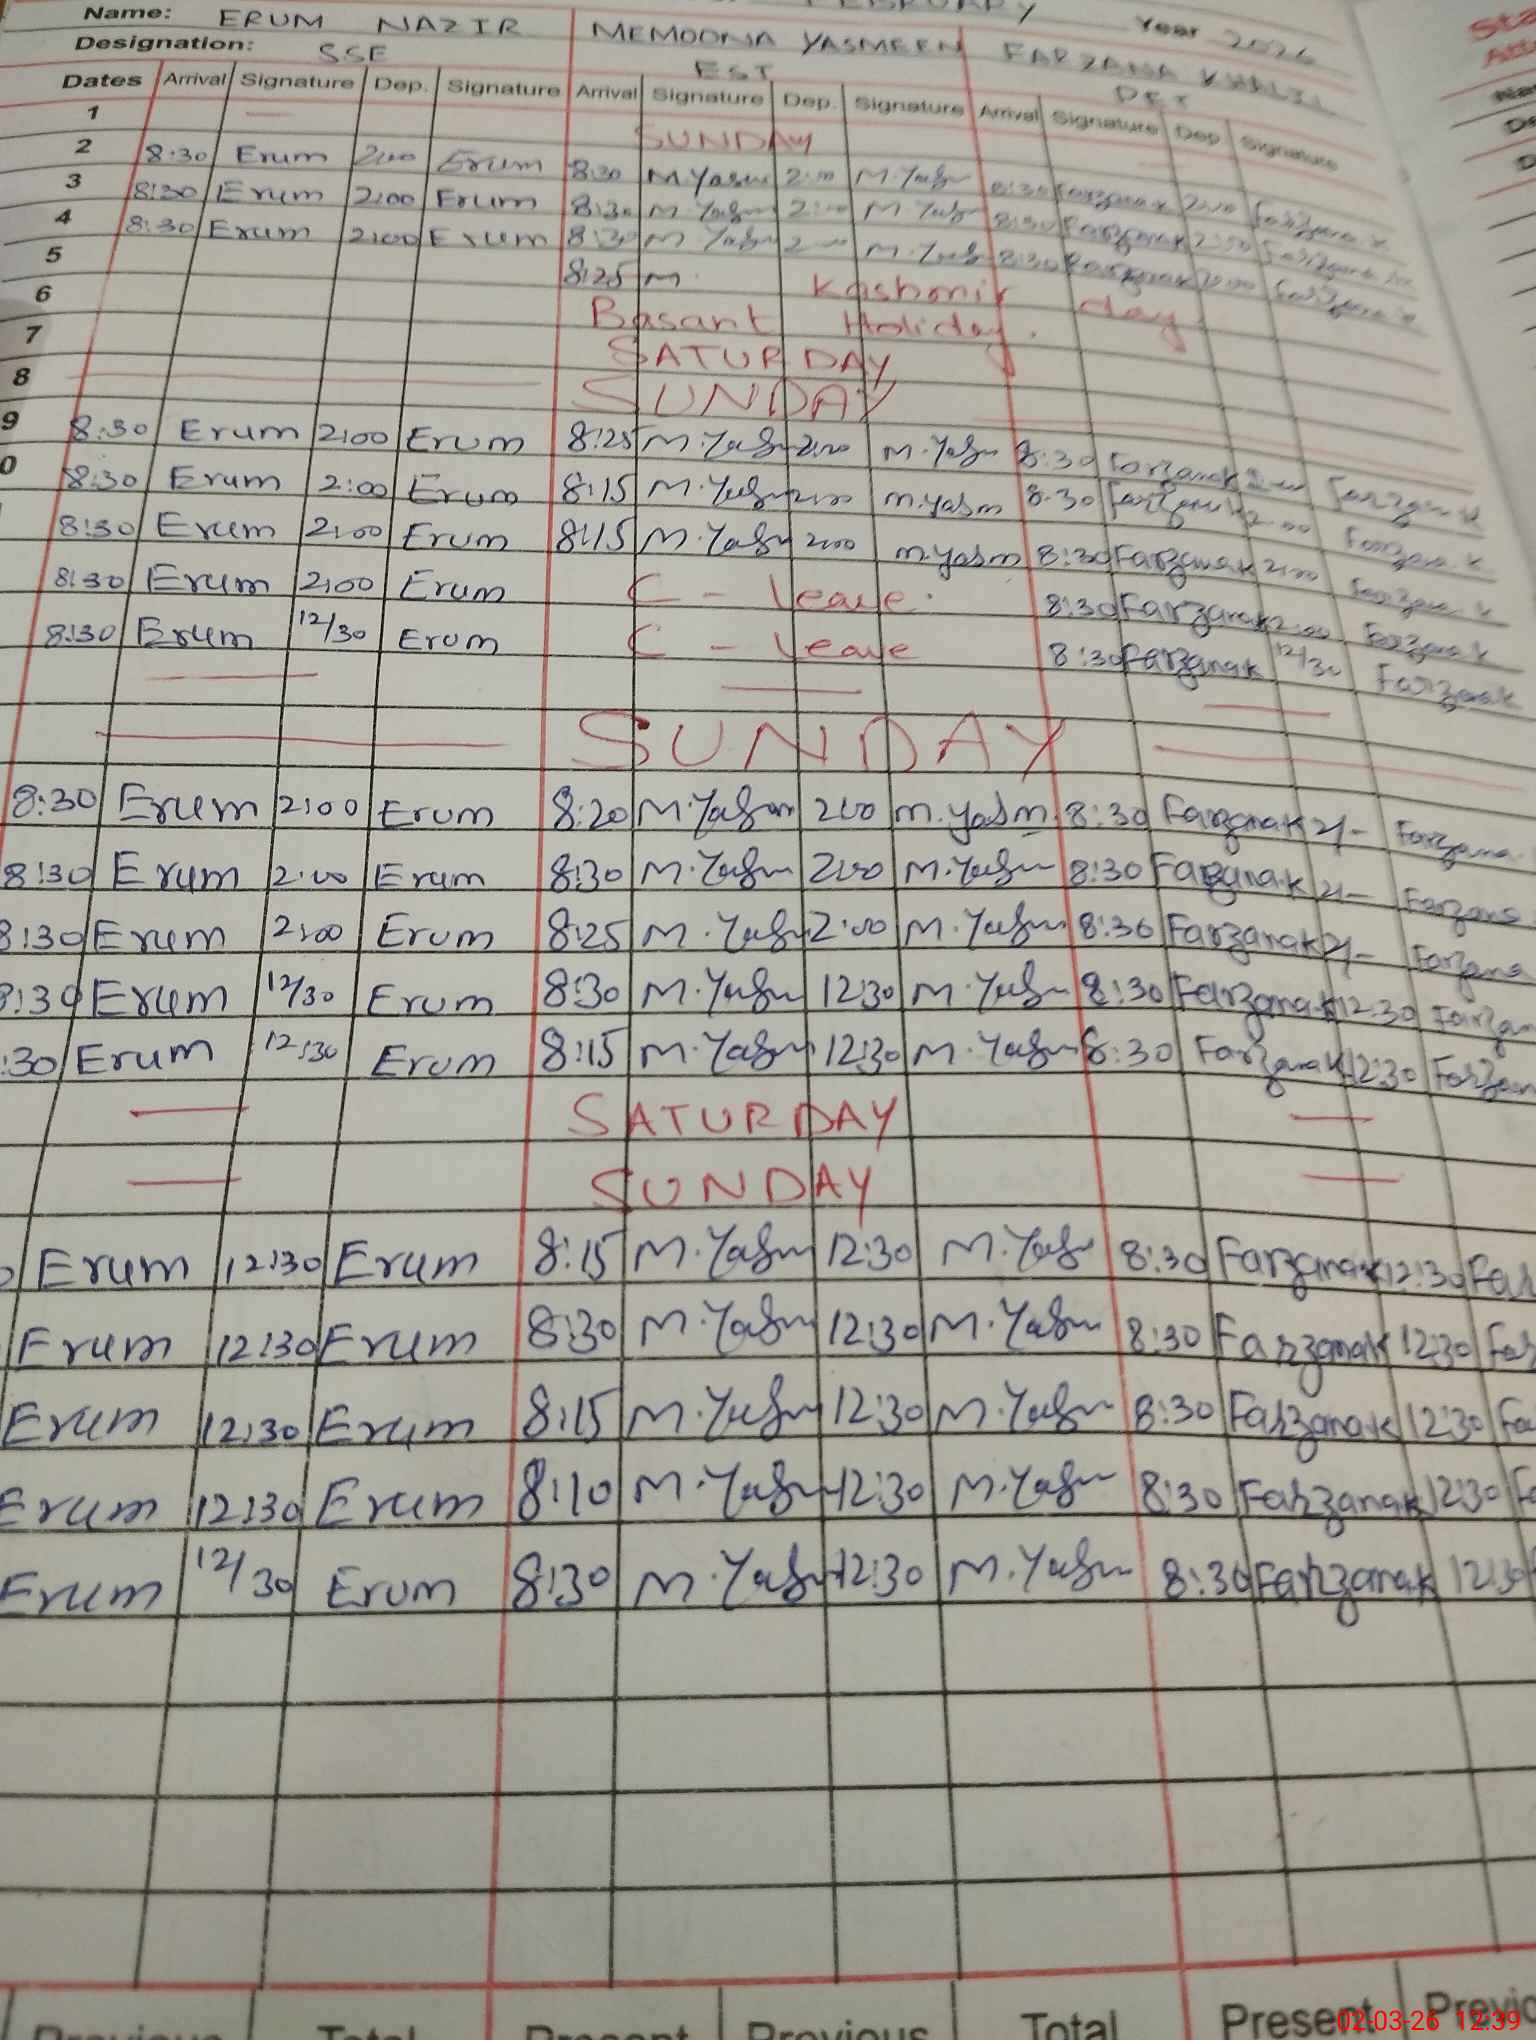 Year 2026
Name: ERUM NAZIR MEMOONA YASMEEN FARZANA KHALIL
Designation: SSE EST
Dates Arrival Signature Dep. Signature Arrival Signature Dep. Signature Arrival Signature Dep Signature
1 SUNDAY
2 8:30 Erum 2:00 Erum 8:30 M.Yasm 2:00 M.Yasm 8:30 Farzanak 2:00 Farzana K
3 8:30 Erum 2:00 Erum 8:30 M.Yasm 2:00 M.Yasm 8:30 Farzanak 2:00
4 8:30 Erum 2:00 Erum 8:30 M.Yasm 2:00 M.Yasm 8:30 Farzanak 2:00 Farzana K
5 8:25 M. Kashmir day
6 Basant Holiday.
7 SATURDAY
8 SUNDAY
9 8:30 Erum 2:00 Erum 8:25 M.Yasm 2:00 M.Yasm 8:30 Farzanak 2:00 Farzana K
0 8:30 Erum 2:00 Erum 8:15 M.Yasm 2:00 m.yasm 8:30 Farzanak 2:00 Farzana K
8:30 Erum 2:00 Erum 8:15 M.Yasm 2:00 m.yasm 8:30 Farzanak 2:00 Farzana K
8:30 Erum 2:00 Erum C - Leave. 8:30 Farzanak 2:00 Farzana K
8:30 Erum 12/30 Erum C - Leave 8:30 Farzanak 12/30 Farzanak
SUNDAY
8:30 Erum 2:00 Erum 8:20 M.Yasm 2:00 m.yasm. 8:30 Farzanak 2/- Farzana
8:30 Erum 2:00 Erum 8:30 M.Yasm 2:00 M.Yasm 8:30 Farzanak 2/- Farzana
8:30 Erum 2:00 Erum 8:25 M.Yasm 2:00 M.Yasm 8:30 Farzanak 2/- Farzana
8:30 Erum 12/30 Erum 8:30 M.Yasm 12:30 M.Yasm 8:30 Farzanak 12:30 Farzan
:30 Erum 12:30 Erum 8:15 M.Yasm 12:30 M.Yasm 8:30 Farzanak 12:30 Farzan
SATURDAY
SUNDAY
Erum 12:30 Erum 8:15 M.Yasm 12:30 M.Yasm 8:30 Farzanak 12:30 Far
Erum 12:30 Erum 8:30 M.Yasm 12:30 M.Yasm 8:30 Farzanak 12:30 Far
Erum 12:30 Erum 8:15 M.Yasm 12:30 M.Yasm 8:30 Farzanak 12:30 Fa
Erum 12:30 Erum 8:10 M.Yasm 12:30 M.Yasm 8:30 Farzanak 12:30 Fa
Erum 12/30 Erum 8:30 M.Yasm 12:30 M.Yasm 8:30 Farzanak 12:30
Previous Total Present Previous Total Present Previo
02-03-26 12:39